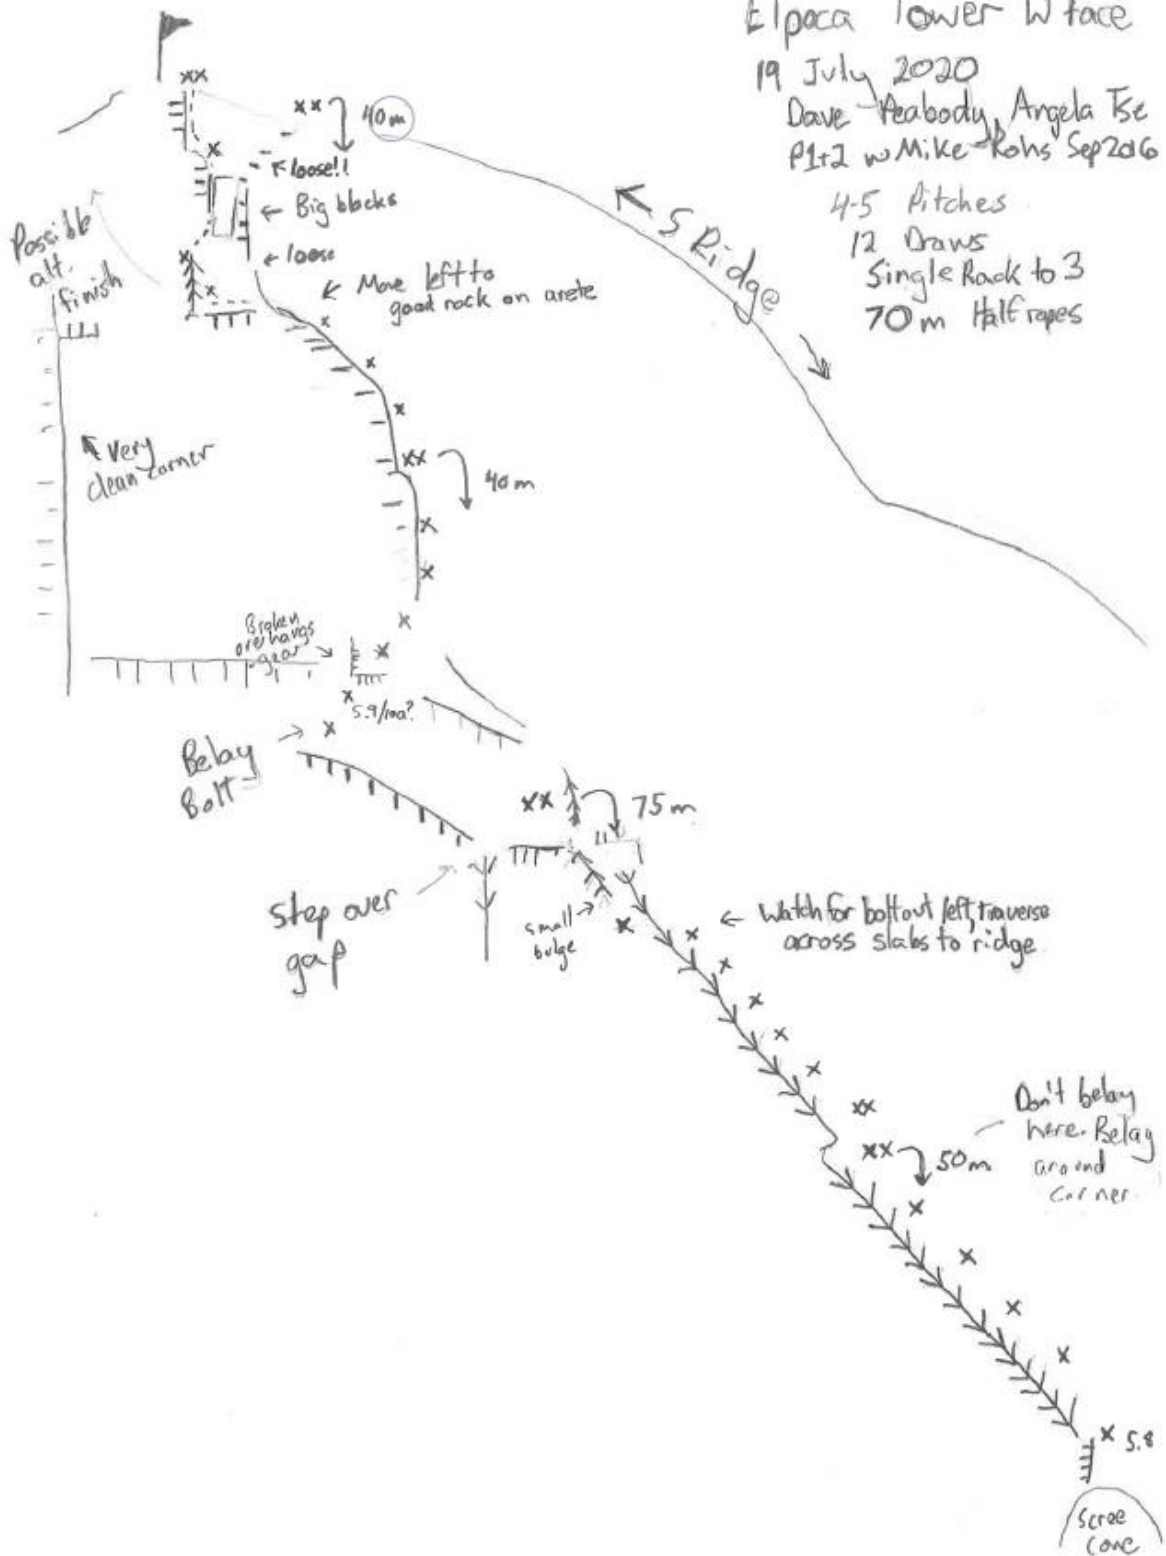 Elpoca Tower W face
19 July 2020
Dave Peabody, Angela Tse
P1+2 w Mike Rohs Sep 2016
4-5 Pitches
12 Draws
Single Rack to 3
70m Half ropes
xx
xx
40m
x
loose!!
Big blocks
loose
x
x
Move left to
good rock on arete
S Ridge
Possible
alt.
finish
x
x
x
Very
clean corner
xx
40m
x
x
x
Broken
overhangs
gear
x
x
5.9/10a?
Belay
Bolt
x
xx
75m
Step over
gap
small
bulge
x
x
Watch for bolt out left, traverse
across slabs to ridge
x
x
x
x
xx
xx
50m
Don't belay
here. Belay
around
corner.
x
x
x
x
x
5.8
Scree
Cone